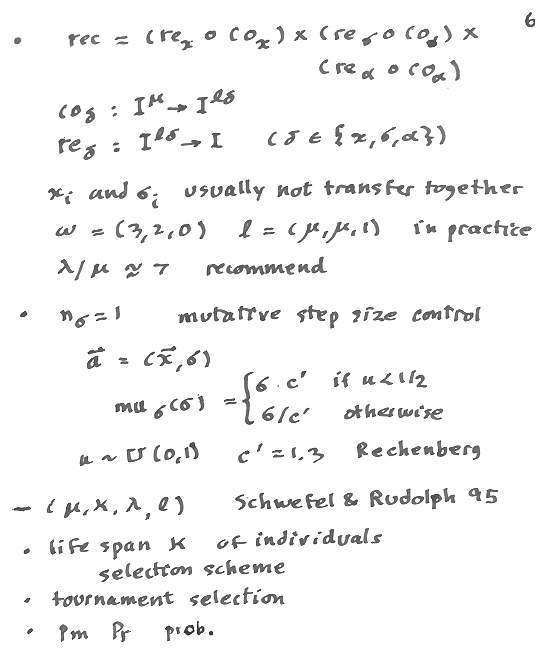 6
• rec = (re_x ∘ co_x) × (re_σ ∘ co_σ) ×
(re_α ∘ co_α)
co_δ : I^μ → I^{lδ}
re_δ : I^{lδ} → I (δ ∈ {x, σ, α})
x_i and σ_i usually not transfer together
ω = (3,2,0) l = (μ, μ, 1) in practice
λ/μ ≈ 7 recommend
• n_σ = 1 mutative step size control
a⃗ = (x⃗, σ)
mu_σ(σ) = { σ · c' if u < 1/2
σ/c' otherwise
u ~ U(0,1) c' = 1,3 Rechenberg
– (μ, κ, λ, ℓ) Schwefel & Rudolph 95
• life span K of individuals
selection scheme
• tournament selection
• Pm Pr prob.